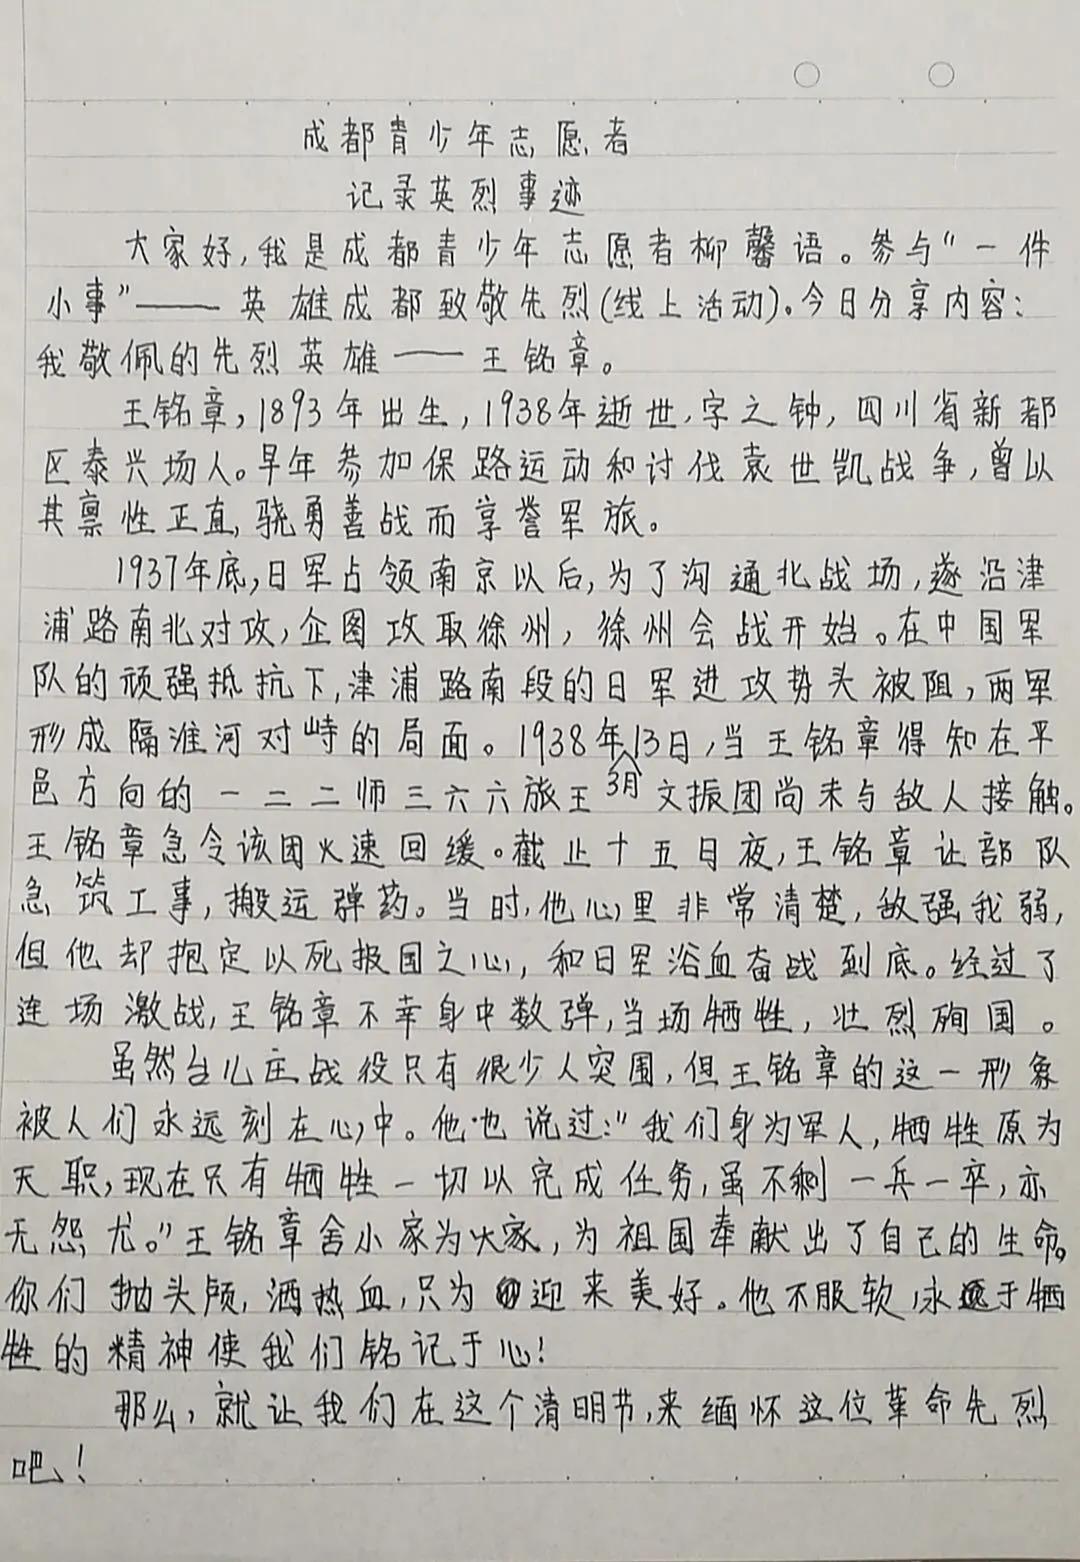 成都青少年志愿者
记录英烈事迹
大家好,我是成都青少年志愿者柳馨语。参与“一件
小事”——英雄成都致敬先烈(线上活动)。今日分享内容:
我敬佩的先烈英雄——王铭章。
王铭章,1893年出生,1938年逝世,字之钟,四川省新都
区泰兴场人。早年参加保路运动和讨伐袁世凯战争,曾以
其禀性正直,骁勇善战而享誉军旅。
1937年底,日军占领南京以后,为了沟通北战场,遂沿津
浦路南北对攻,企图攻取徐州,徐州会战开始。在中国军
队的顽强抵抗下,津浦路南段的日军进攻势头被阻,两军
形成隔淮河对峙的局面。1938年3月13日,当王铭章得知在平
邑方向的一二二师三六六旅王文振团尚未与敌人接触。
王铭章急令该团火速回缓。截止十五日夜,王铭章让部队
急筑工事,搬运弹药。当时,他心里非常清楚,敌强我弱,
但他却抱定以死报国之心,和日军浴血奋战到底。经过了
连场激战,王铭章不幸身中数弹,当场牺牲,壮烈殉国。
虽然台儿庄战役只有很少人突围,但王铭章的这一形象
被人们永远刻在心中。他也说过:“我们身为军人,牺牲原为
天职,现在只有牺牲一切以完成任务,虽不剩一兵一卒,亦
无怨尤。”王铭章舍小家为大家,为祖国奉献出了自己的生命。
你们抛头颅,洒热血,只为迎来美好。他不服软,永远于牺
牲的精神使我们铭记于心!
那么,就让我们在这个清明节,来缅怀这位革命先烈
吧!